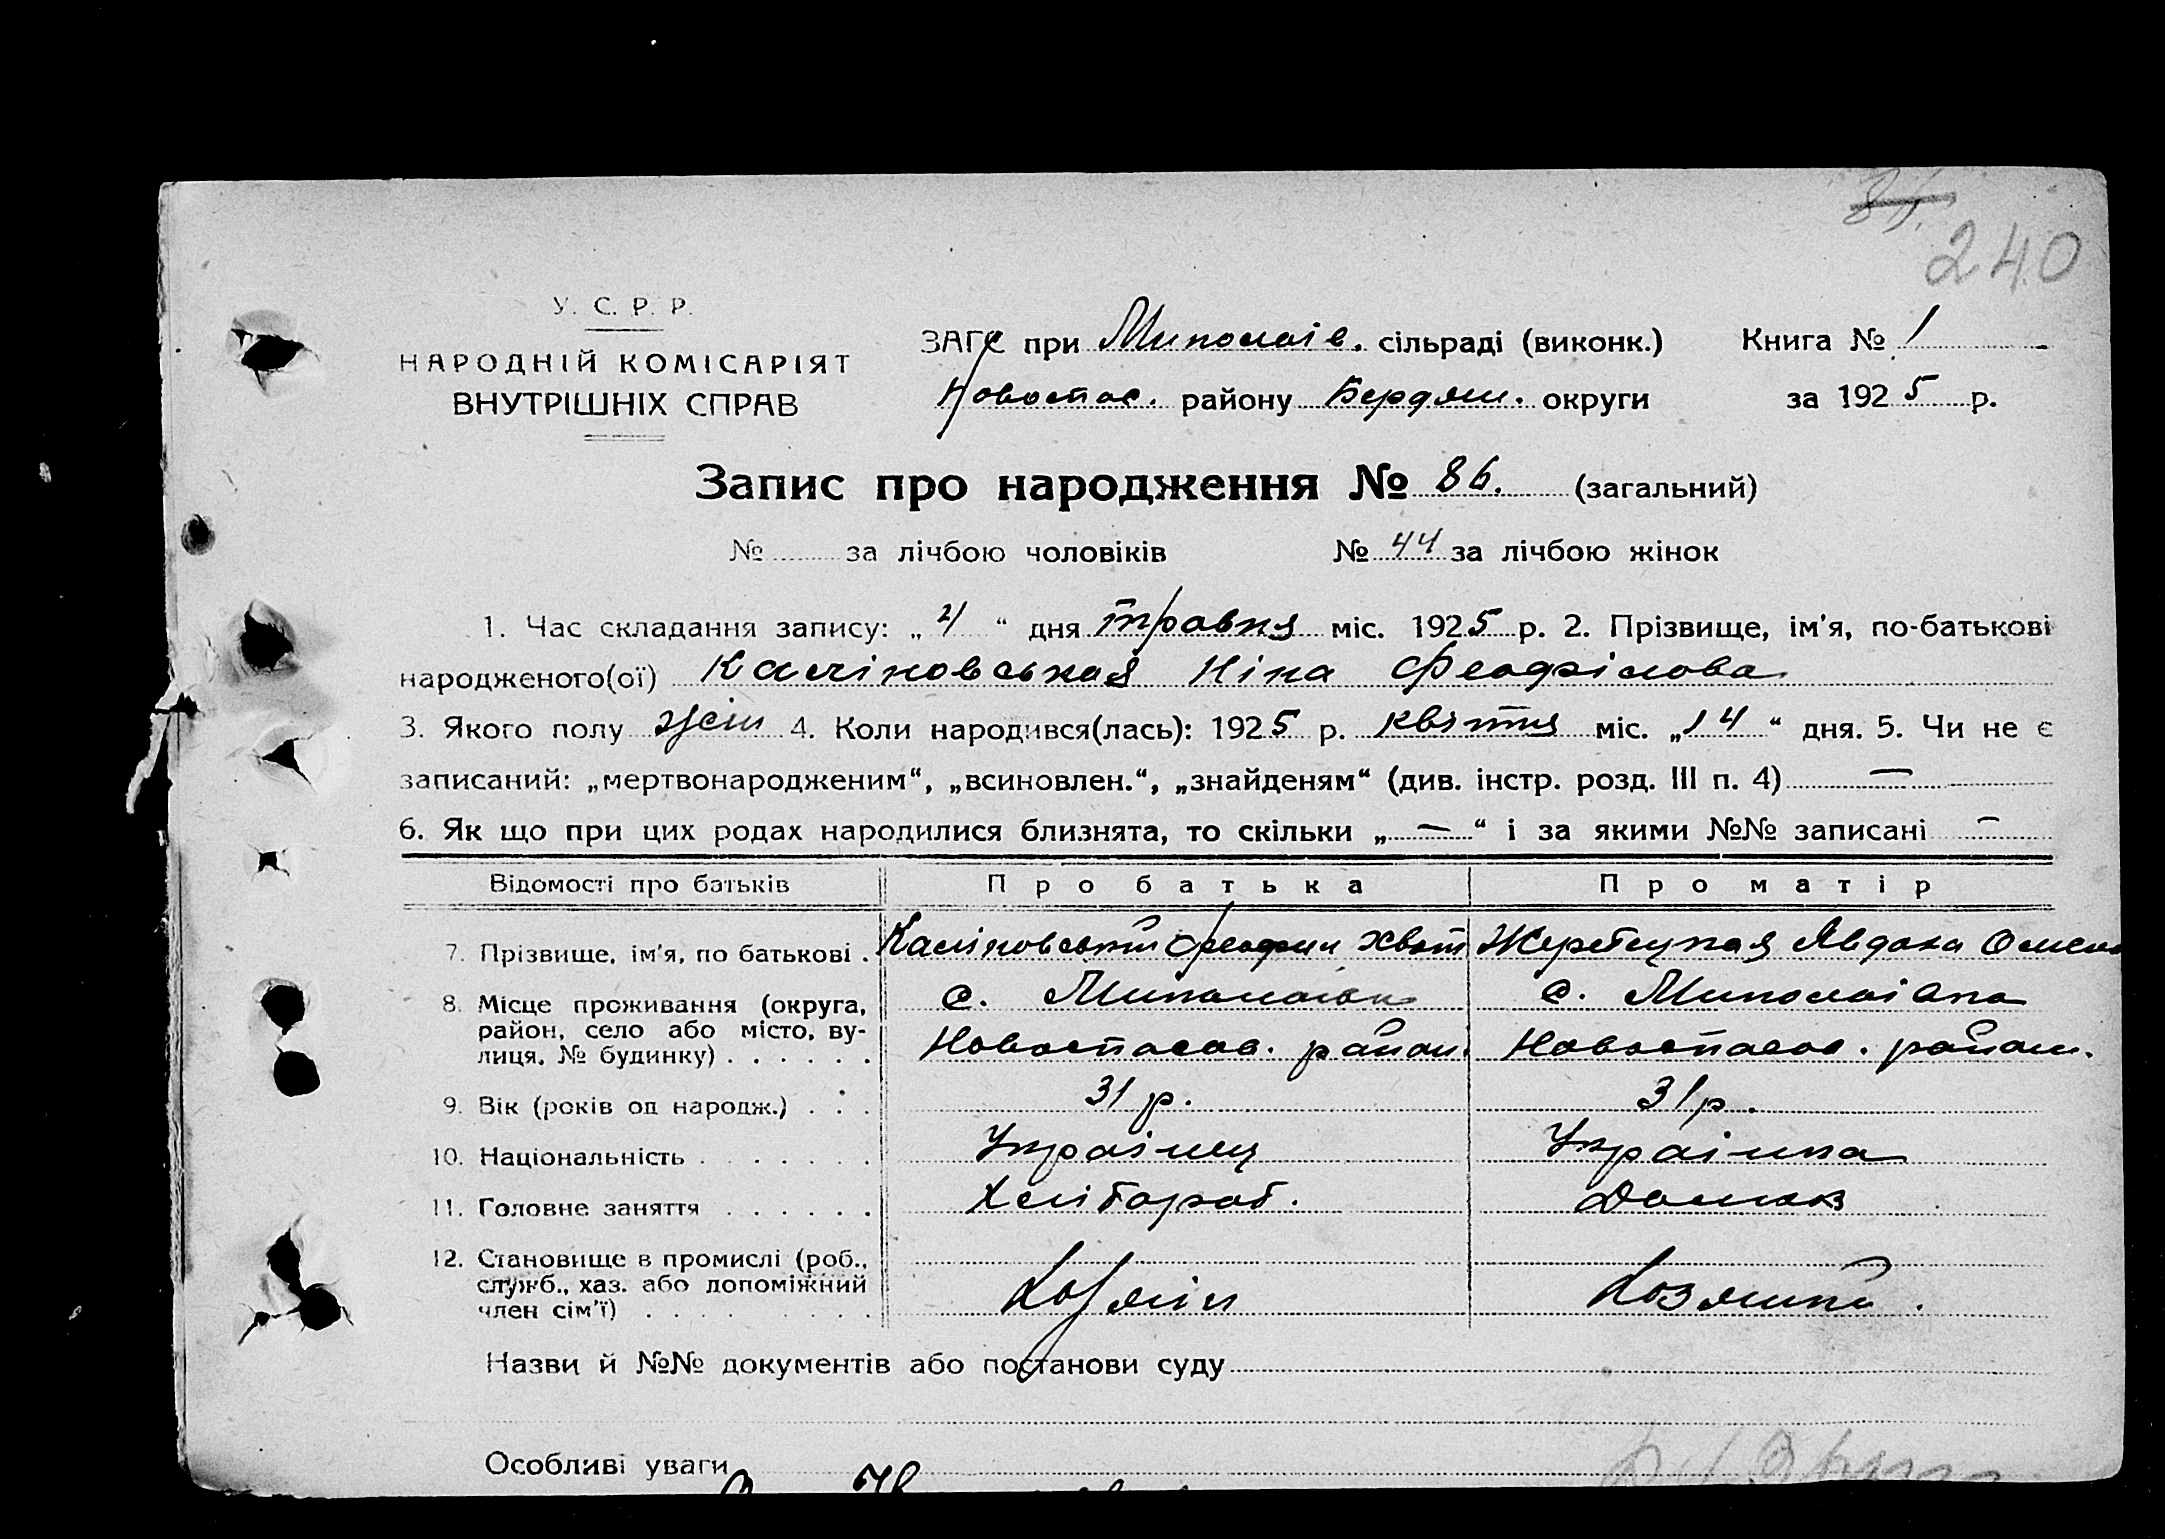 81.
240
У. С. Р. Р.
НАРОДНІЙ КОМІСАРІЯТ
ВНУТРІШНІХ СПРАВ
ЗАГС при Миколаів. сільраді (виконк.) Книга № 1
Новоспас. району Бердян. округи за 1925 р.
Запис про народження № 86. (загальний)
№ за лічбою чоловіків № 44 за лічбою жінок
1. Час складання запису: „4“ дня травня міс. 1925 р. 2. Прізвище, ім'я, по-батькові
народженого(ої) Каліновськая Ніна Феофілова
3. Якого полу жін 4. Коли народився(лась): 1925 р. квітня міс. „14“ дня. 5. Чи не є
записаний: „мертвонародженим“, „всиновлен.“, „знайденям“ (див. інстр. розд. III п. 4) —
6. Як що при цих родах народилися близнята, то скільки „—“ і за якими №№ записані —
Відомості про батьків Про батька Про матір
7. Прізвище, ім'я, по батькові . Каліновський Феофил Жеребецкая Явдоха
8. Місце проживання (округа, с. с. Миколаівка
район, село або місто, ву-
лиця, № будинку) . . . . . . Новоспасов. район. Новоспасов. район.
9. Вік (років од народж.) . . . 31 р. 31 р.
10. Національність . . . . . . . Украінец Украінка
11. Головне заняття . . . . . . Хлібороб. Домаш
12. Становище в промислі (роб.,
служб., хаз. або допоміжний Хозяін Хозяйка.
член сім'ї) . . . . . . . .
Назви й №№ документів або постанови суду
Особливі уваги